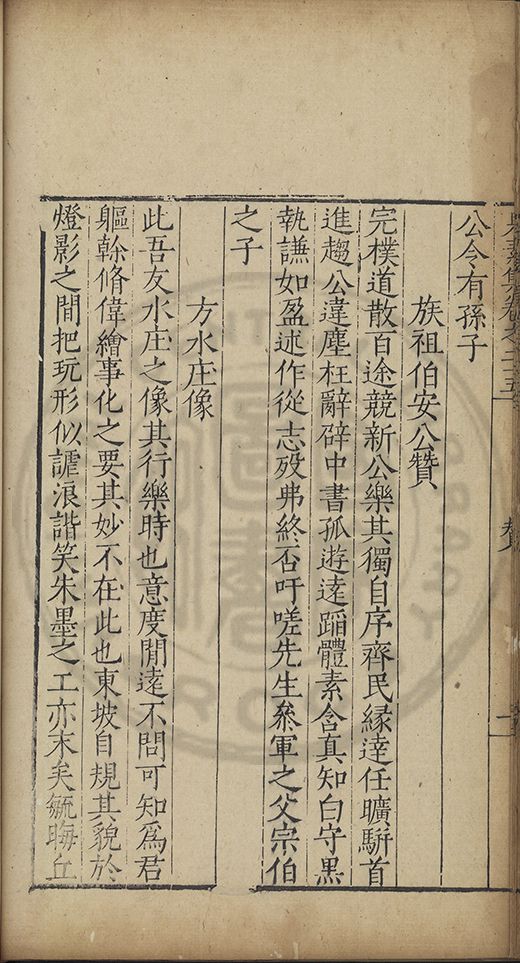 公今有孫子
族祖伯安公贊
完樸道散百途競新公樂其獨自序齊民緣達任曠駢首
進趨公違塵枉辭辟中書孤遊遠蹈體素含真知白守黑
執謙如盈述作從志歿弗終否吁嗟先生叅軍之父宗伯
之子
方水庄像
此吾友水庄之像其行樂時也意度閒遠不問可知為君
軀幹脩偉繪事化之要其妙不在此也東坡自規其貌於
燈影之間把玩形似謔浪諧笑朱墨之工亦末矣毓晦丘